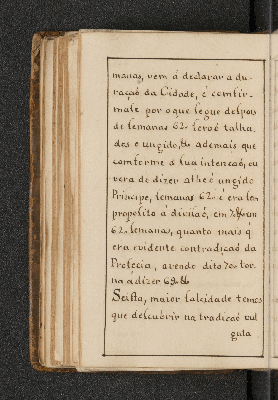 manas, vem á declarar a du-
raçaõ da Cidade, é comfir-
male por o que segue despois
de semanas 62. seroé talha
dos o ungido, & ademais que
comforme a sua intencaõ, ou
vera de dizer athe é ungido
Principe, semanas 62. é era los
proposito á divisaõ, em 7. & en
62. semanas, quanto mais q
era evidente contradiçaõ da
Profecia, avendo dito 70. tor
na á dizer 69. &
Seisto, maior falcidade temos
que descubrir na tradicaõ vul
gata